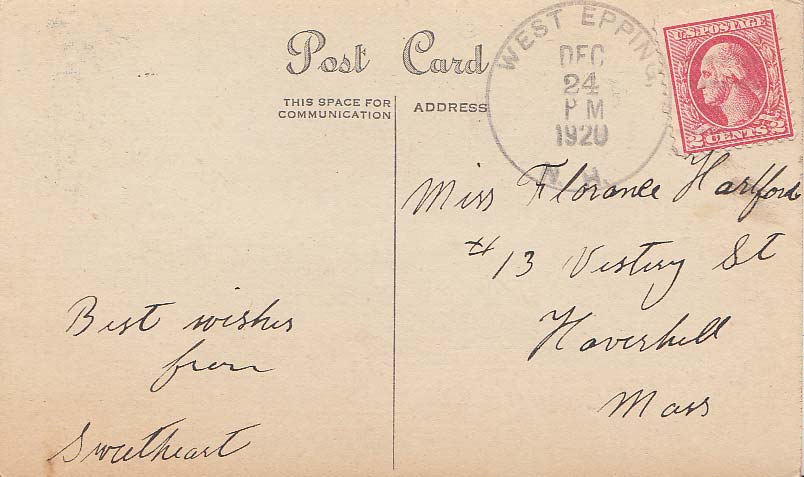 Post Card
THIS SPACE FOR
COMMUNICATION
ADDRESS
WEST EPPING,
DEC
24
PM
1920
N.H.
U.S. POSTAGE
2 CENTS 2
Miss Florance Hartford
#13 Vestery St
Haverhill
Mass
Best wishes
from
Sweetheart